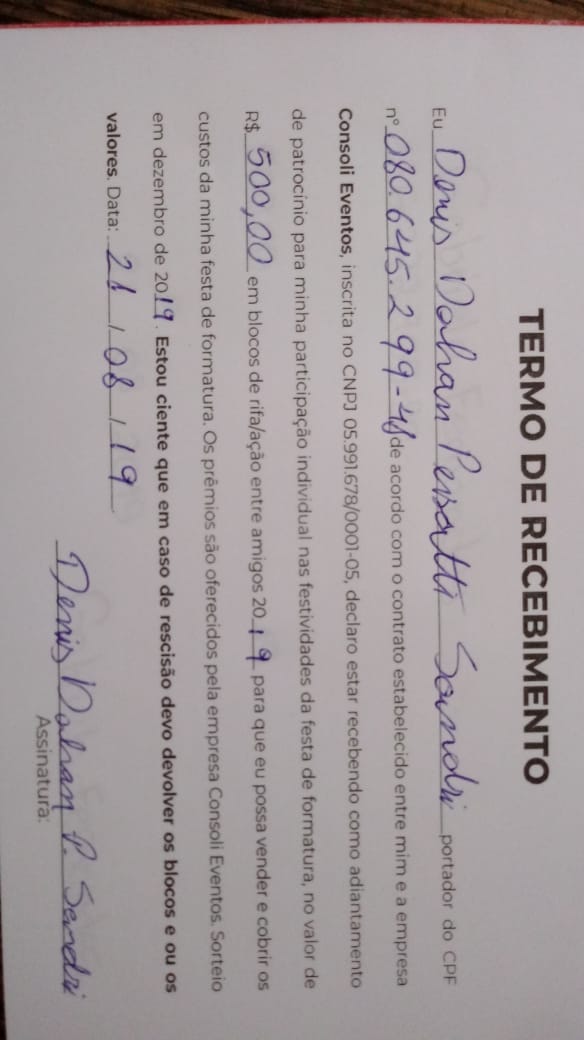 TERMO DE RECEBIMENTO
Eu Denis Dahan Pessatti Sandri portador do CPF
nº 080.645.299-48 de acordo com o contrato estabelecido entre mim e a empresa
Consoli Eventos, inscrita no CNPJ 05.991.678/0001-05, declaro estar recebendo como adiantamento
de patrocínio para minha participação individual nas festividades da festa de formatura, no valor de
R$ 500,00 em blocos de rifa/ação entre amigos 2019 para que eu possa vender e cobrir os
custos da minha festa de formatura. Os prêmios são oferecidos pela empresa Consoli Eventos. Sorteio
em dezembro de 2019. Estou ciente que em caso de rescisão devo devolver os blocos e ou os
valores. Data: 21 / 08 / 19
Denis Dahan P. Sandri
Assinatura: